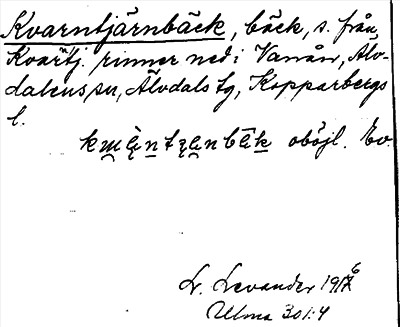 Kvarntjärnbäck, bäck, s. från
Kvarntj. rinner ned i Vanån, Älv-
dalens sn, Älvdals tg, Kopparbergs
l.
oböjl. Ev.
L. Levander 191
Ulma 301:4